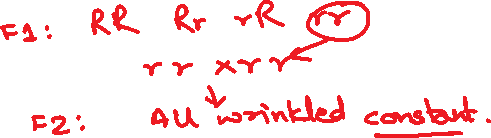 F1: RR Rr rR rr
rr x rr
F2: All wrinkled constant.